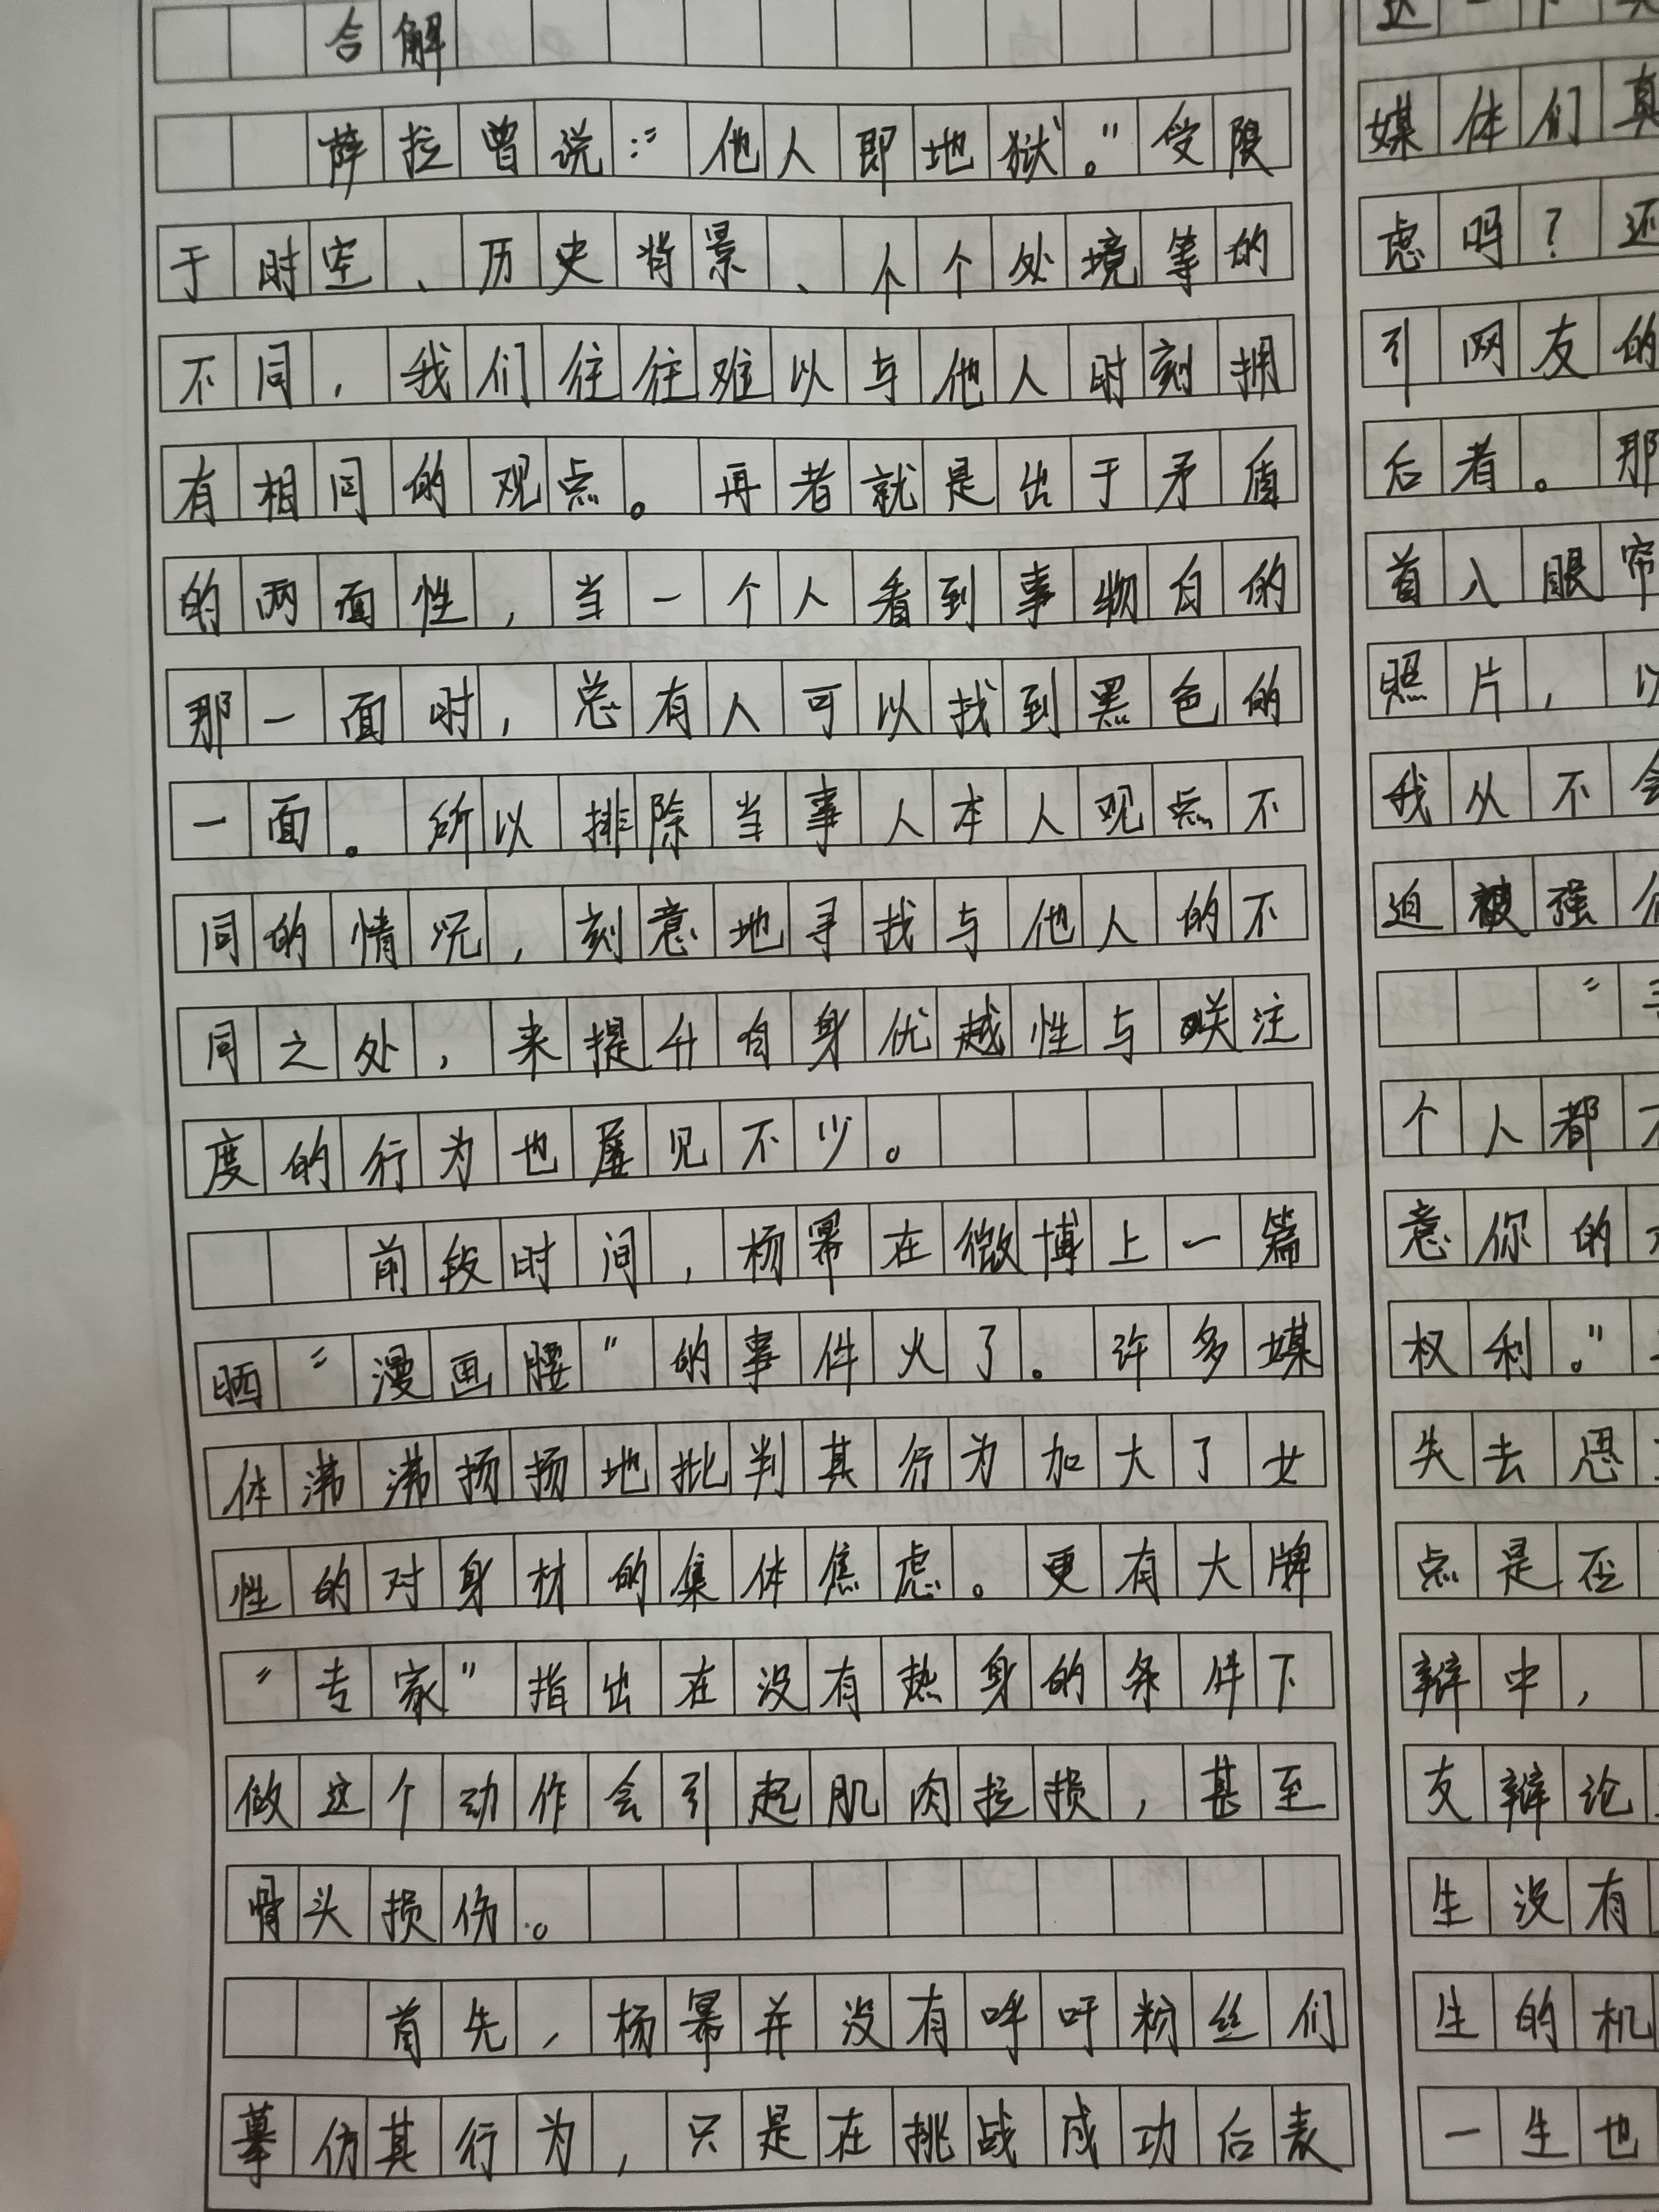 合解
薛拉曾说：“他人即地狱。”受限
于时空、历史背景、个个处境等的
不同，我们往往难以与他人时刻拥
有相同的观点。再者就是出于矛盾
的两面性，当一个人看到事物白的
那一面时，总有人可以找到黑色的
一面。所以排除当事人本人观点不
同的情况，刻意地寻找与他人的不
同之处，来提升自身优越性与关注
度的行为也屡见不少。
前段时间，杨幂在微博上一篇
晒“漫画腰”的事件火了。许多媒
体沸沸扬扬地批判其行为加大了女
性的对身材的集体焦虑。更有大牌
“专家”指出在没有热身的条件下
做这个动作会引起肌肉拉损，甚至
骨头损伤。
首先，杨幂并没有呼吁粉丝们
摹仿其行为，只是在挑战成功后表
媒体们真
虑吗？还
引网友的
后者。那
首入眼帘
照片，以
我从不会
迫被强
“
个人都不
意你的
权利。”
失去思
点是否
辩中，
友辩论
生没有
生的机
一生也